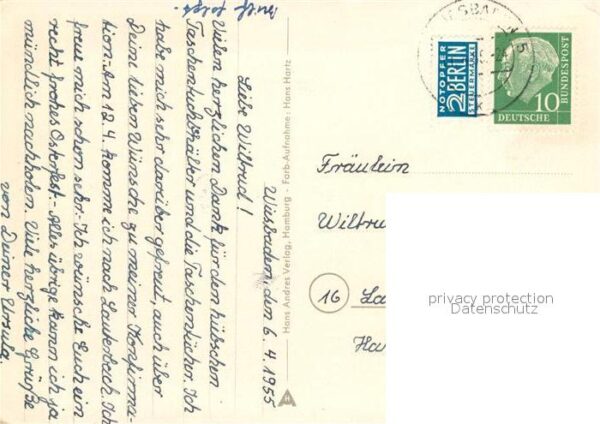 Brief folgt.
Wiesbaden, den 6.4.1955
Liebe Wiltrud!
Vielen herzlichen Dank für den hübschen
Taschentuchbehälter und die Taschentücher. Ich
habe mich sehr darüber gefreut, auch über
Deine lieben Wünsche zu meiner Konfirma-
tion. Am 12.4. komme ich nach Lauterbach. Ich
freue mich schon sehr. Ich wünsche Euch ein
recht frohes Osterfest. Alles übrige kann ich ja
mündlich nachholen. Viele herzliche Grüße
von Deiner Ursula.
Hans Andres Verlag, Hamburg - Farb-Aufnahme: Hans Hartz
NOTOPFER
2 BERLIN
STEUERMARKE
10
DEUTSCHE
BUNDESPOST
Fräulein
Wiltru
16 La
Ha
privacy protection
Datenschutz